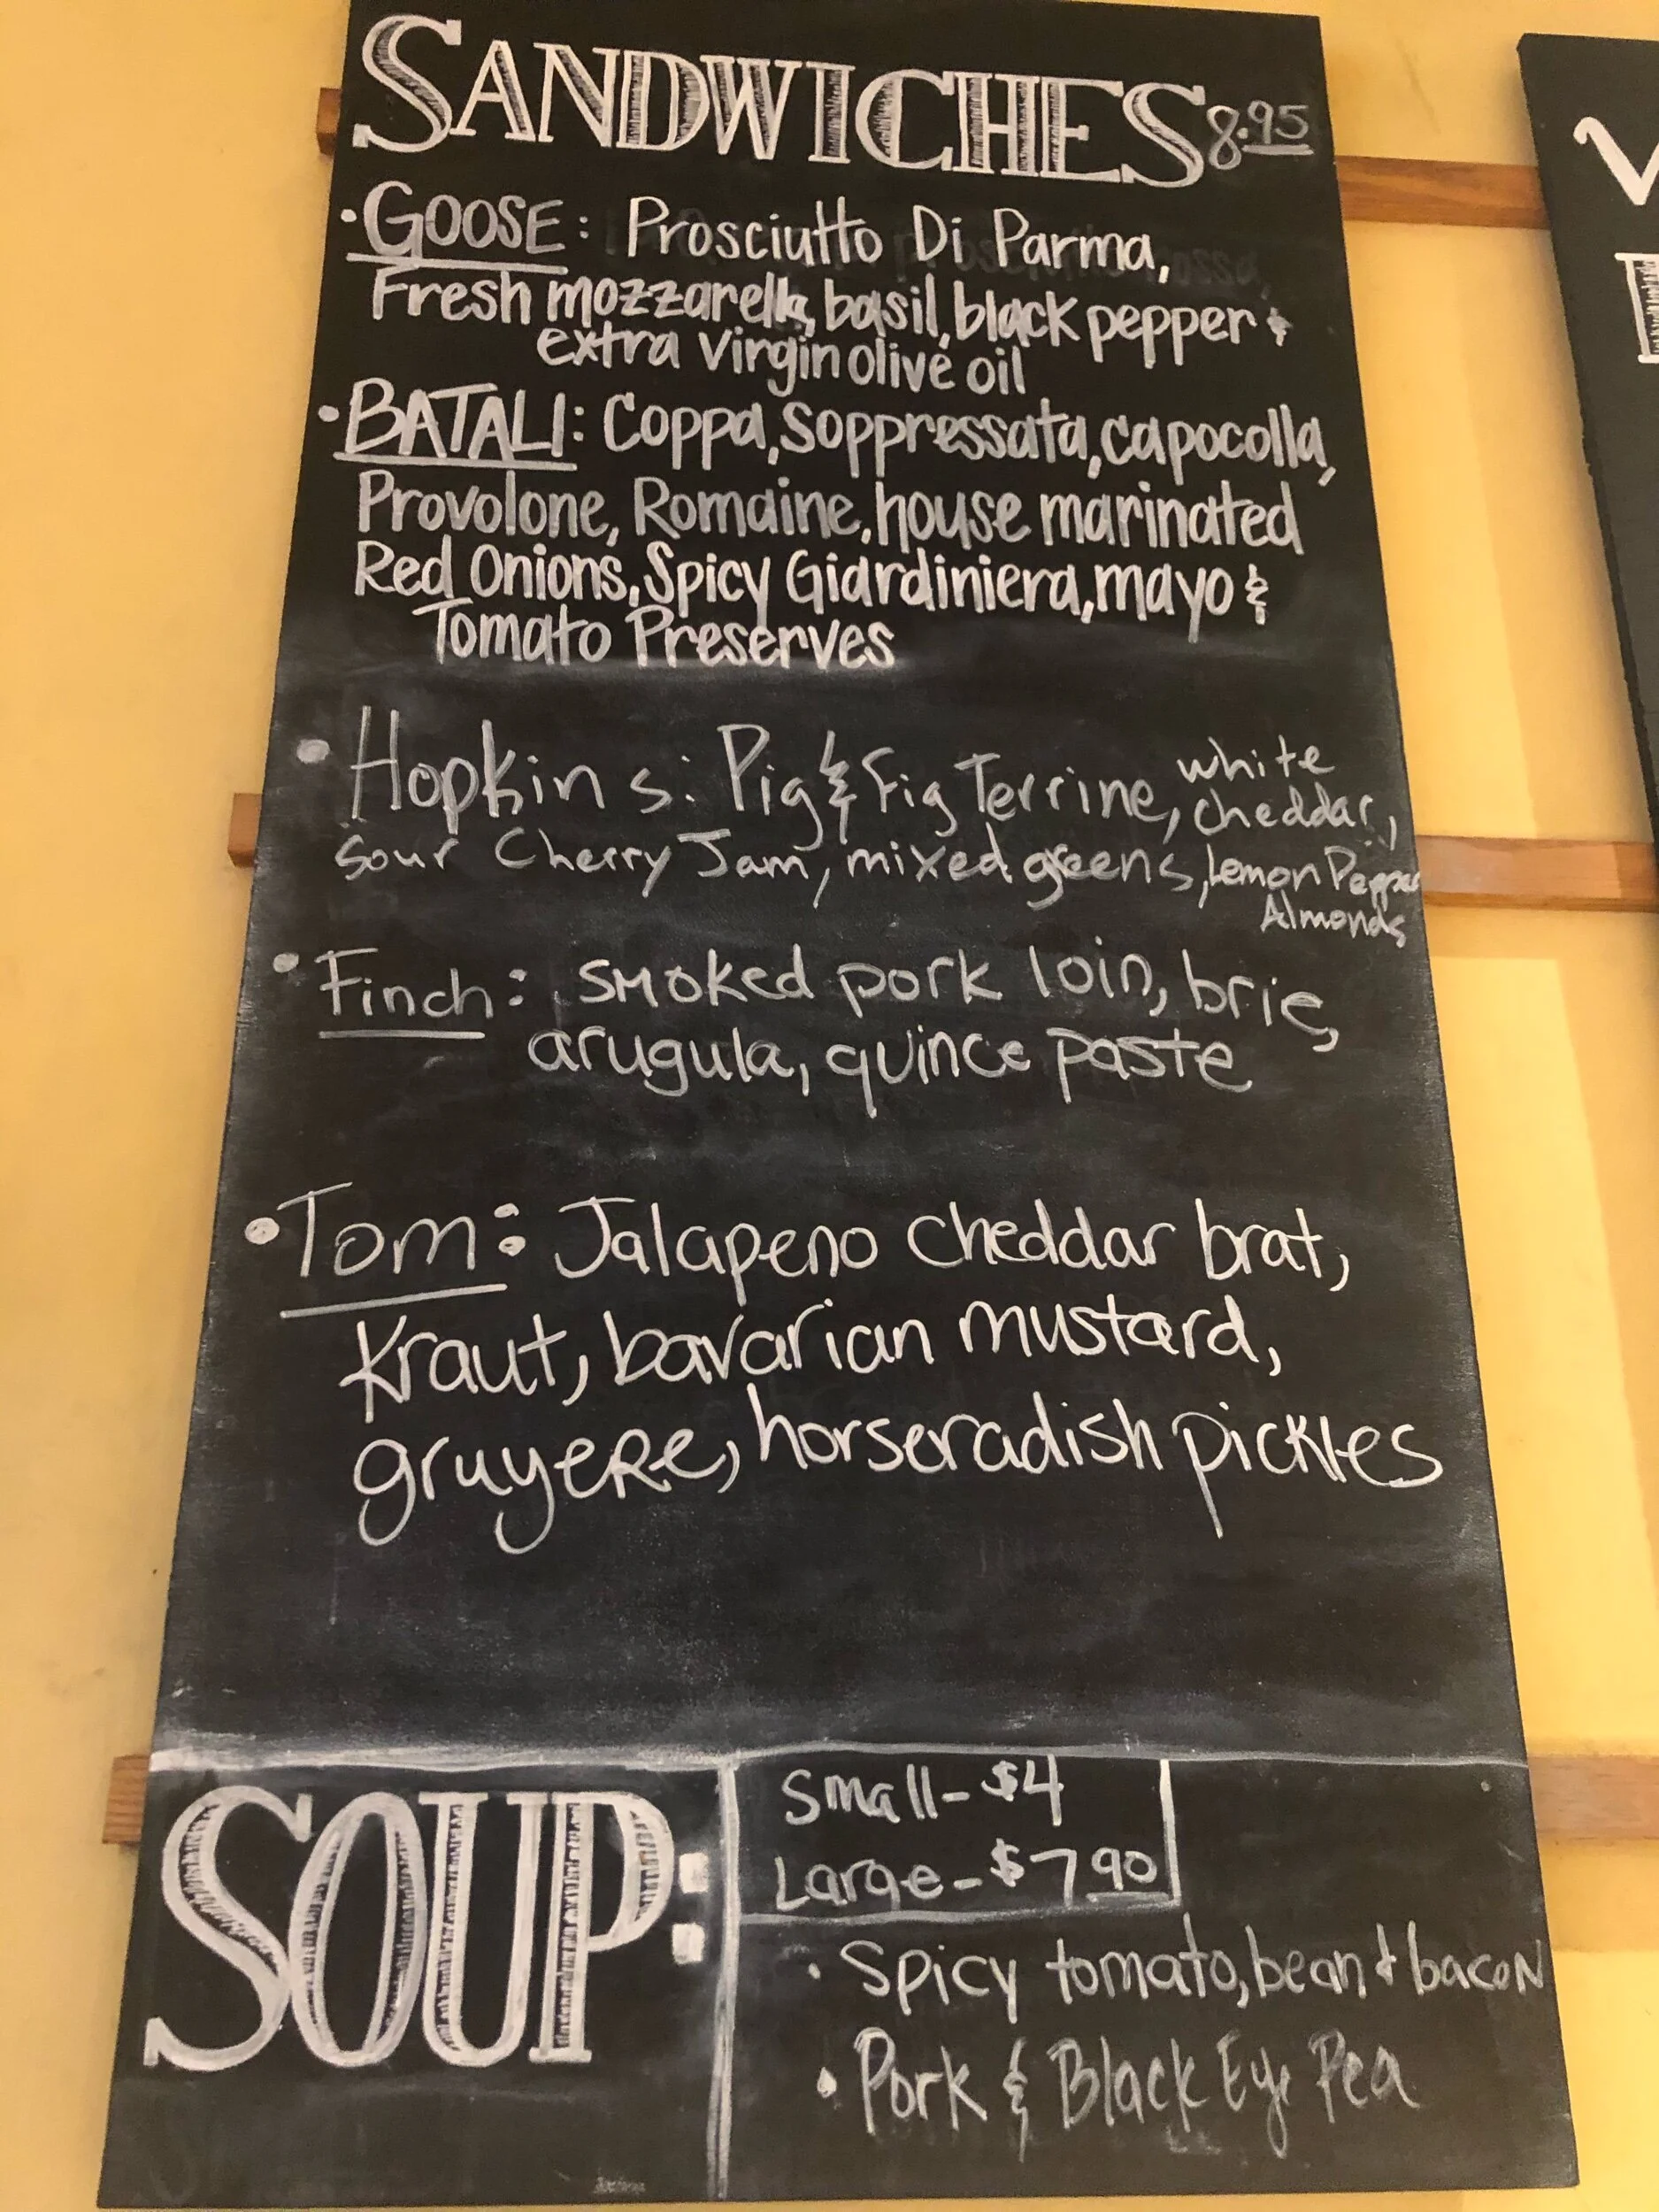 SANDWICHES 8.95
• GOOSE: Prosciutto Di Parma,
Fresh mozzarella, basil, black pepper &
extra virgin olive oil
• BATALI: Coppa, Soppressata, capocolla,
Provolone, Romaine, house marinated
Red Onions, Spicy Giardiniera, mayo &
Tomato Preserves
• Hopkins: Pig & Fig Terrine, white
cheddar,
Sour Cherry Jam, mixed greens, Lemon Pepper
Almonds
• Finch: smoked pork loin, brie,
arugula, quince paste
• Tom: Jalapeno cheddar brat,
Kraut, bavarian mustard,
gruyere, horseradish pickles
SOUP:
Small - $4
Large - $7 90
• Spicy tomato, bean & bacon
• Pork & Black Eye Pea